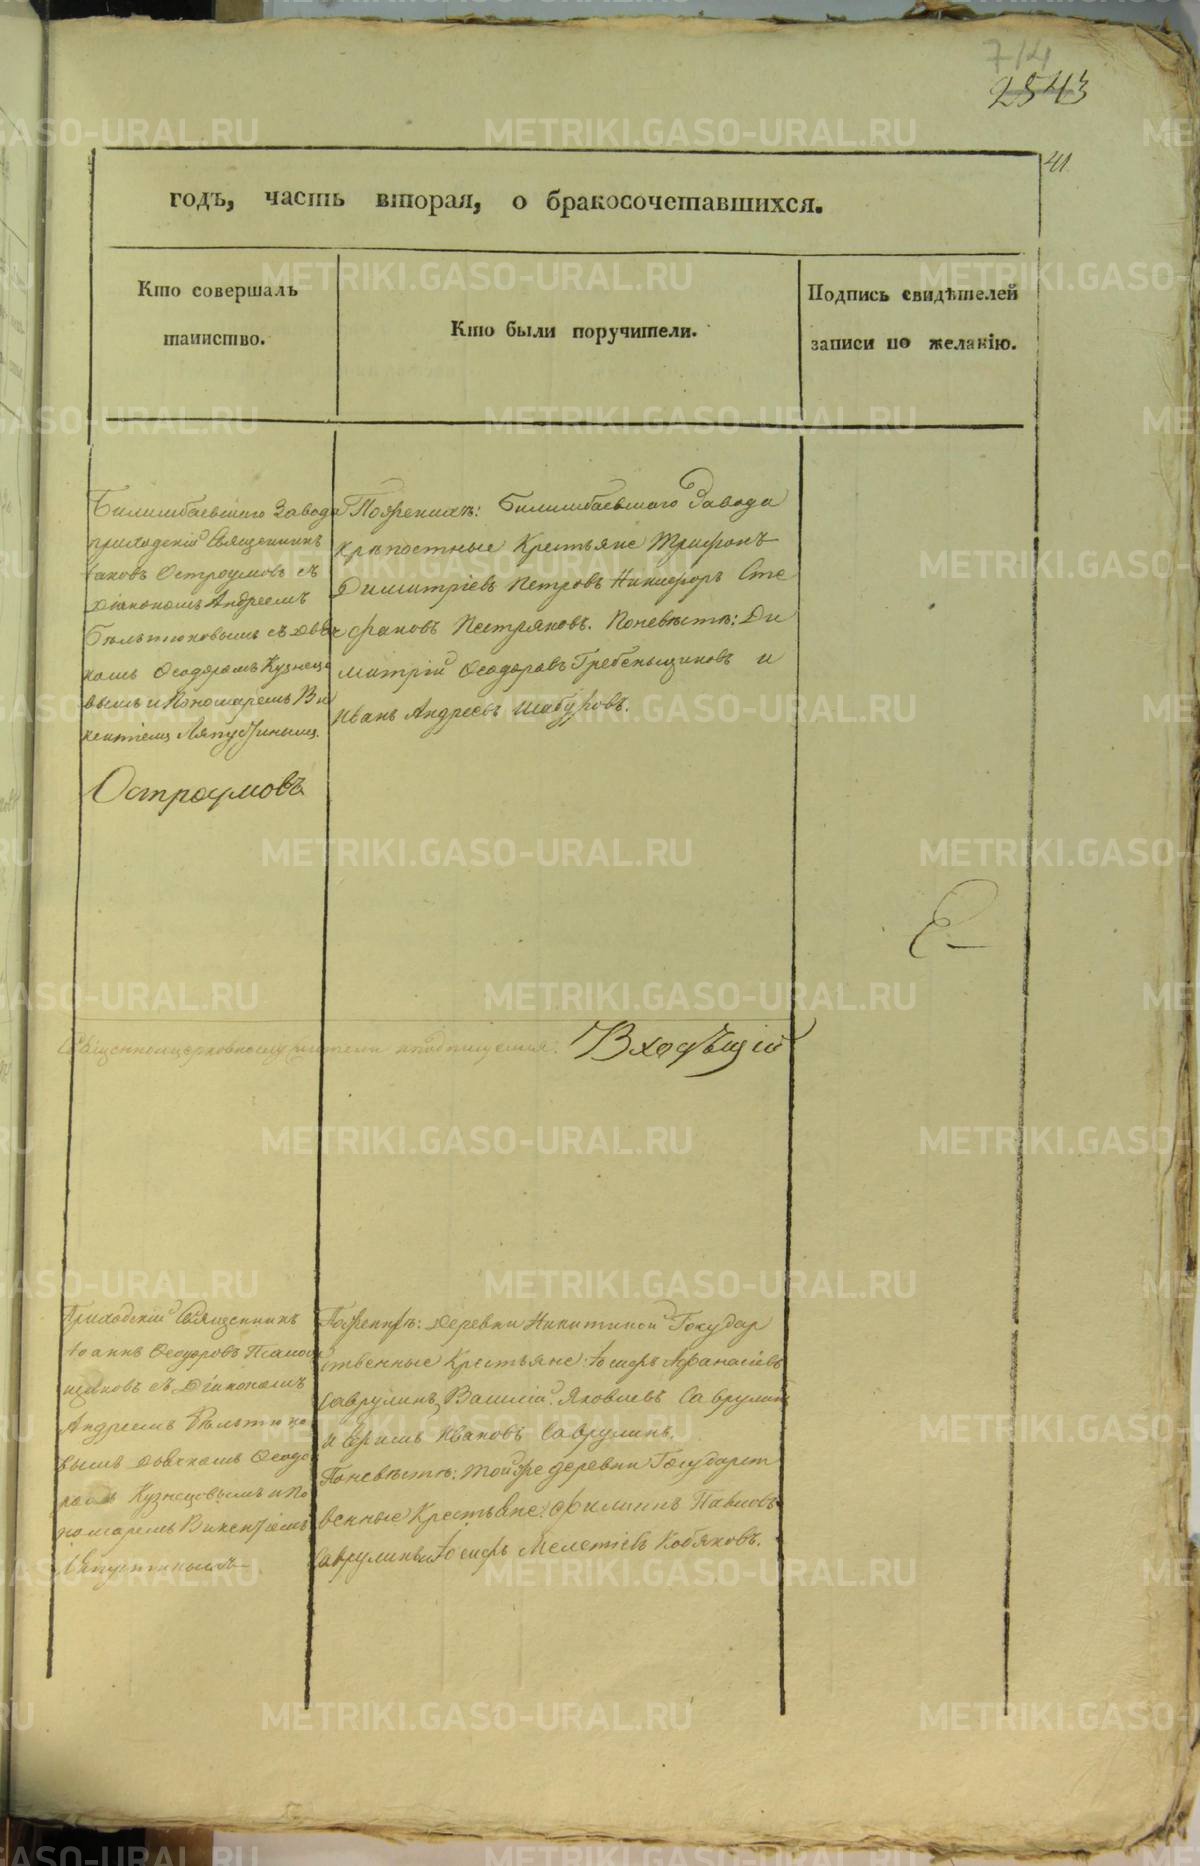 714
2543
41
годъ, часть вторая, о бракосочетавшихся.
Кто совершалъ
таинство.
Кто были поручители.
Подпись свидѣтелей
записи по желанію.
Билимбаевшаго Завода
приходскій Священникъ
Іаковъ Остроумовъ съ
діакономъ Андреемъ
Бѣльтюковымъ съ дьяч
комъ Ѳеодоромъ Кузнецо
вымъ и Пономаремъ Ви
кентіемъ Ляпустинымъ.
Остроумовъ
Поженихѣ: Билимбаевшаго Завода
крѣпостные Крестьяне Трифонъ
Димитріевъ Петровъ Никифоръ Сте
фановъ Пестряковъ. Поневѣстѣ: Ди
митрій Ѳеодоровъ Гребеньщиковъ и
Иванъ Андреевъ Шабуровъ.
Входящій
Приходскій Священникъ
Іоаннъ Ѳеодоровъ
съ Діакономъ
Андреемъ Бѣльтюко
вымъ дьячкомъ Ѳеодо
ромъ Кузнецовымъ и по
номаремъ Викентіемъ
Ляпустинымъ
Поженихѣ: деревни Никитиной Государ
ственные Крестьяне: Іосифъ Афанасіевъ
Саврулинъ, Василій Яковлевъ Саврулинъ
и Ефимъ Ивановъ Саврулинъ.
Поневѣстѣ: тойже деревни Государст
венные Крестьяне: Филиппъ Павловъ
Саврулинъ и Іосифъ Мелетіевъ Кобяковъ.
METRIKI.GASO-URAL.RU